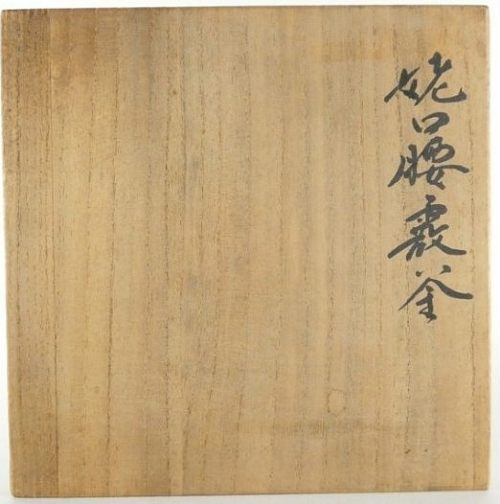 姥口腰霰釜